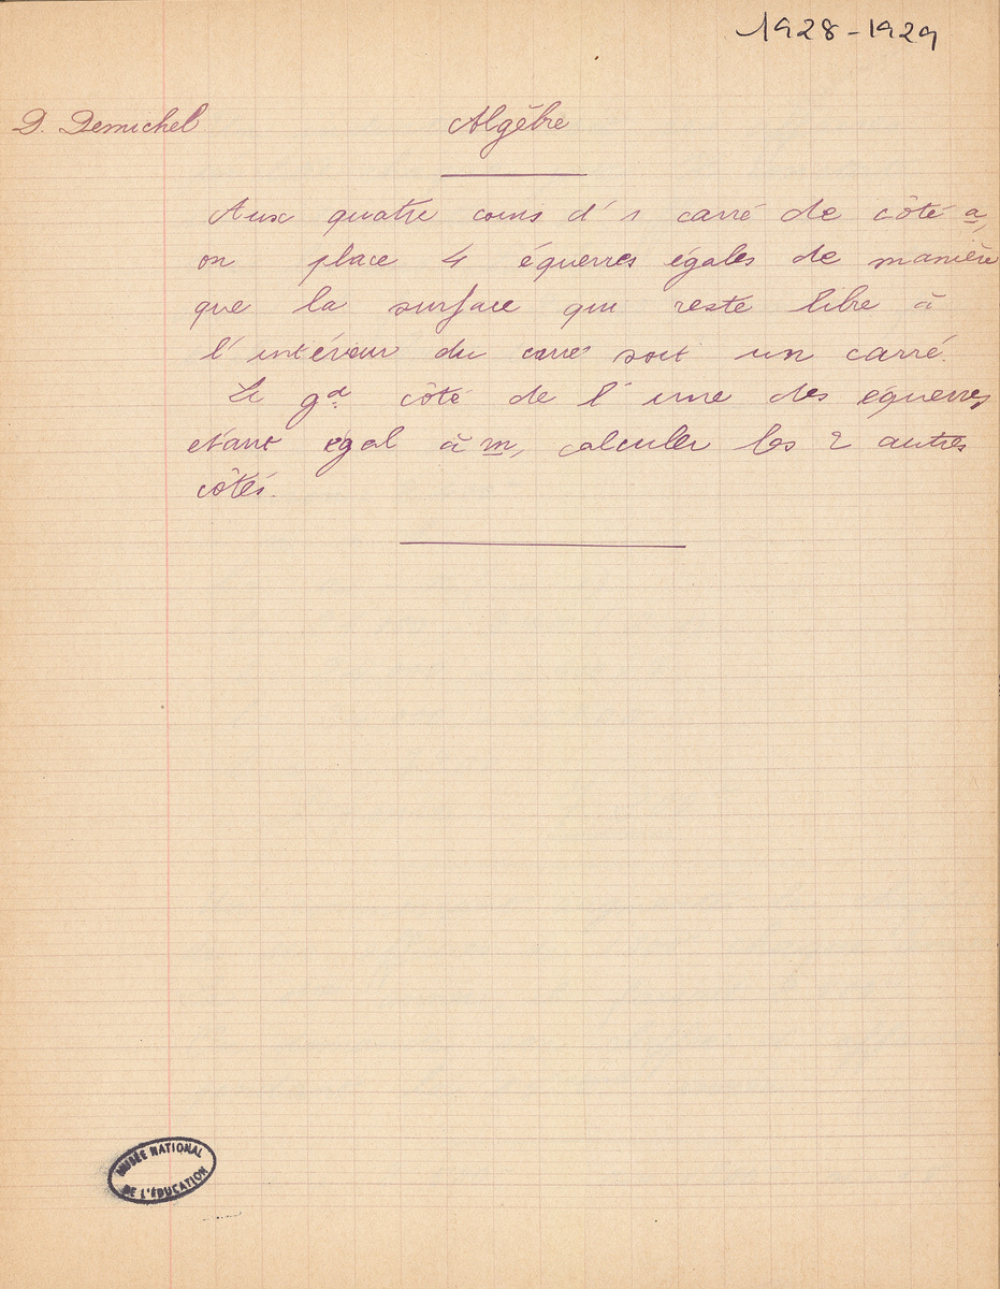 1928-1929
D. Demichel
Algèbre
Aux quatre coins d'1 carré de côté a,
on place 4 équerres égales de manière
que la surface qui reste libre à
l'intérieur du carré soit un carré.
Le gd côté de l'une des équerres
étant égal à m, calculer les 2 autres
côtés.
MUSÉE NATIONAL
DE L'ÉDUCATION